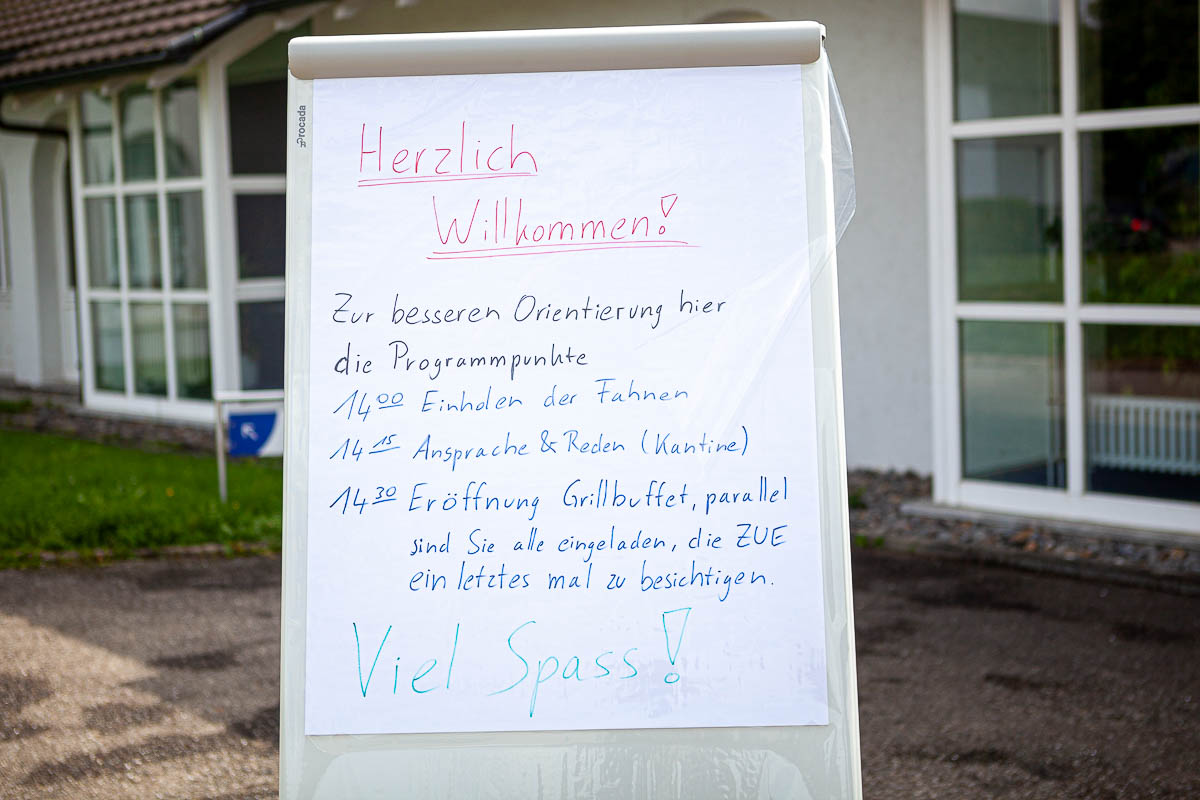 rocada
Herzlich
Willkommen!
Zur besseren Orientierung hier
die Programmpunkte
14 00 Einholen der Fahnen
14 15 Ansprache & Reden (Kantine)
14 30 Eröffnung Grillbuffet, parallel
sind Sie alle eingeladen, die ZUE
ein letztes mal zu besichtigen.
Viel Spass!